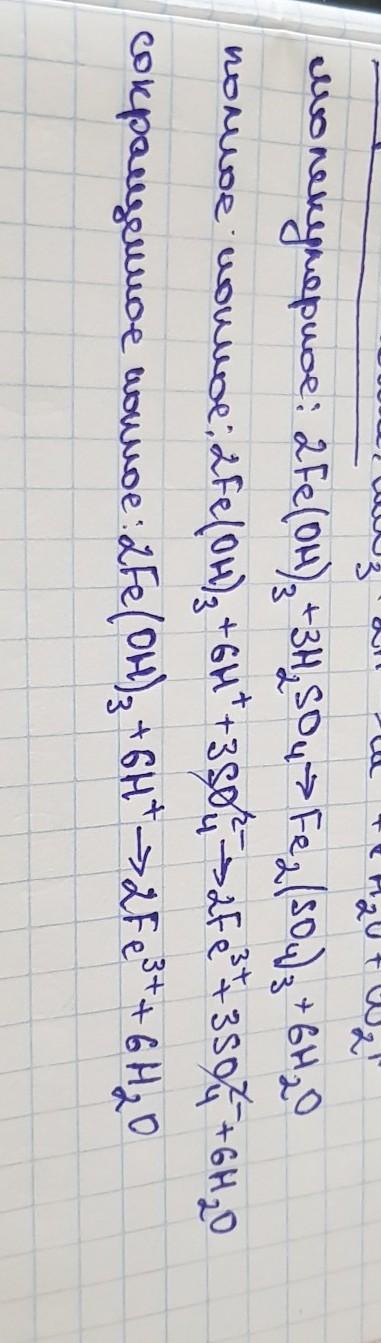 молекулярное: 2Fe(OH)₃ + 3H₂SO₄ → Fe₂(SO₄)₃ + 6H₂O
полное ионное: 2Fe(OH)₃ + 6H⁺ + 3SO₄²⁻ → 2Fe³⁺ + 3SO₄²⁻ + 6H₂O
сокращенное ионное: 2Fe(OH)₃ + 6H⁺ → 2Fe³⁺ + 6H₂O